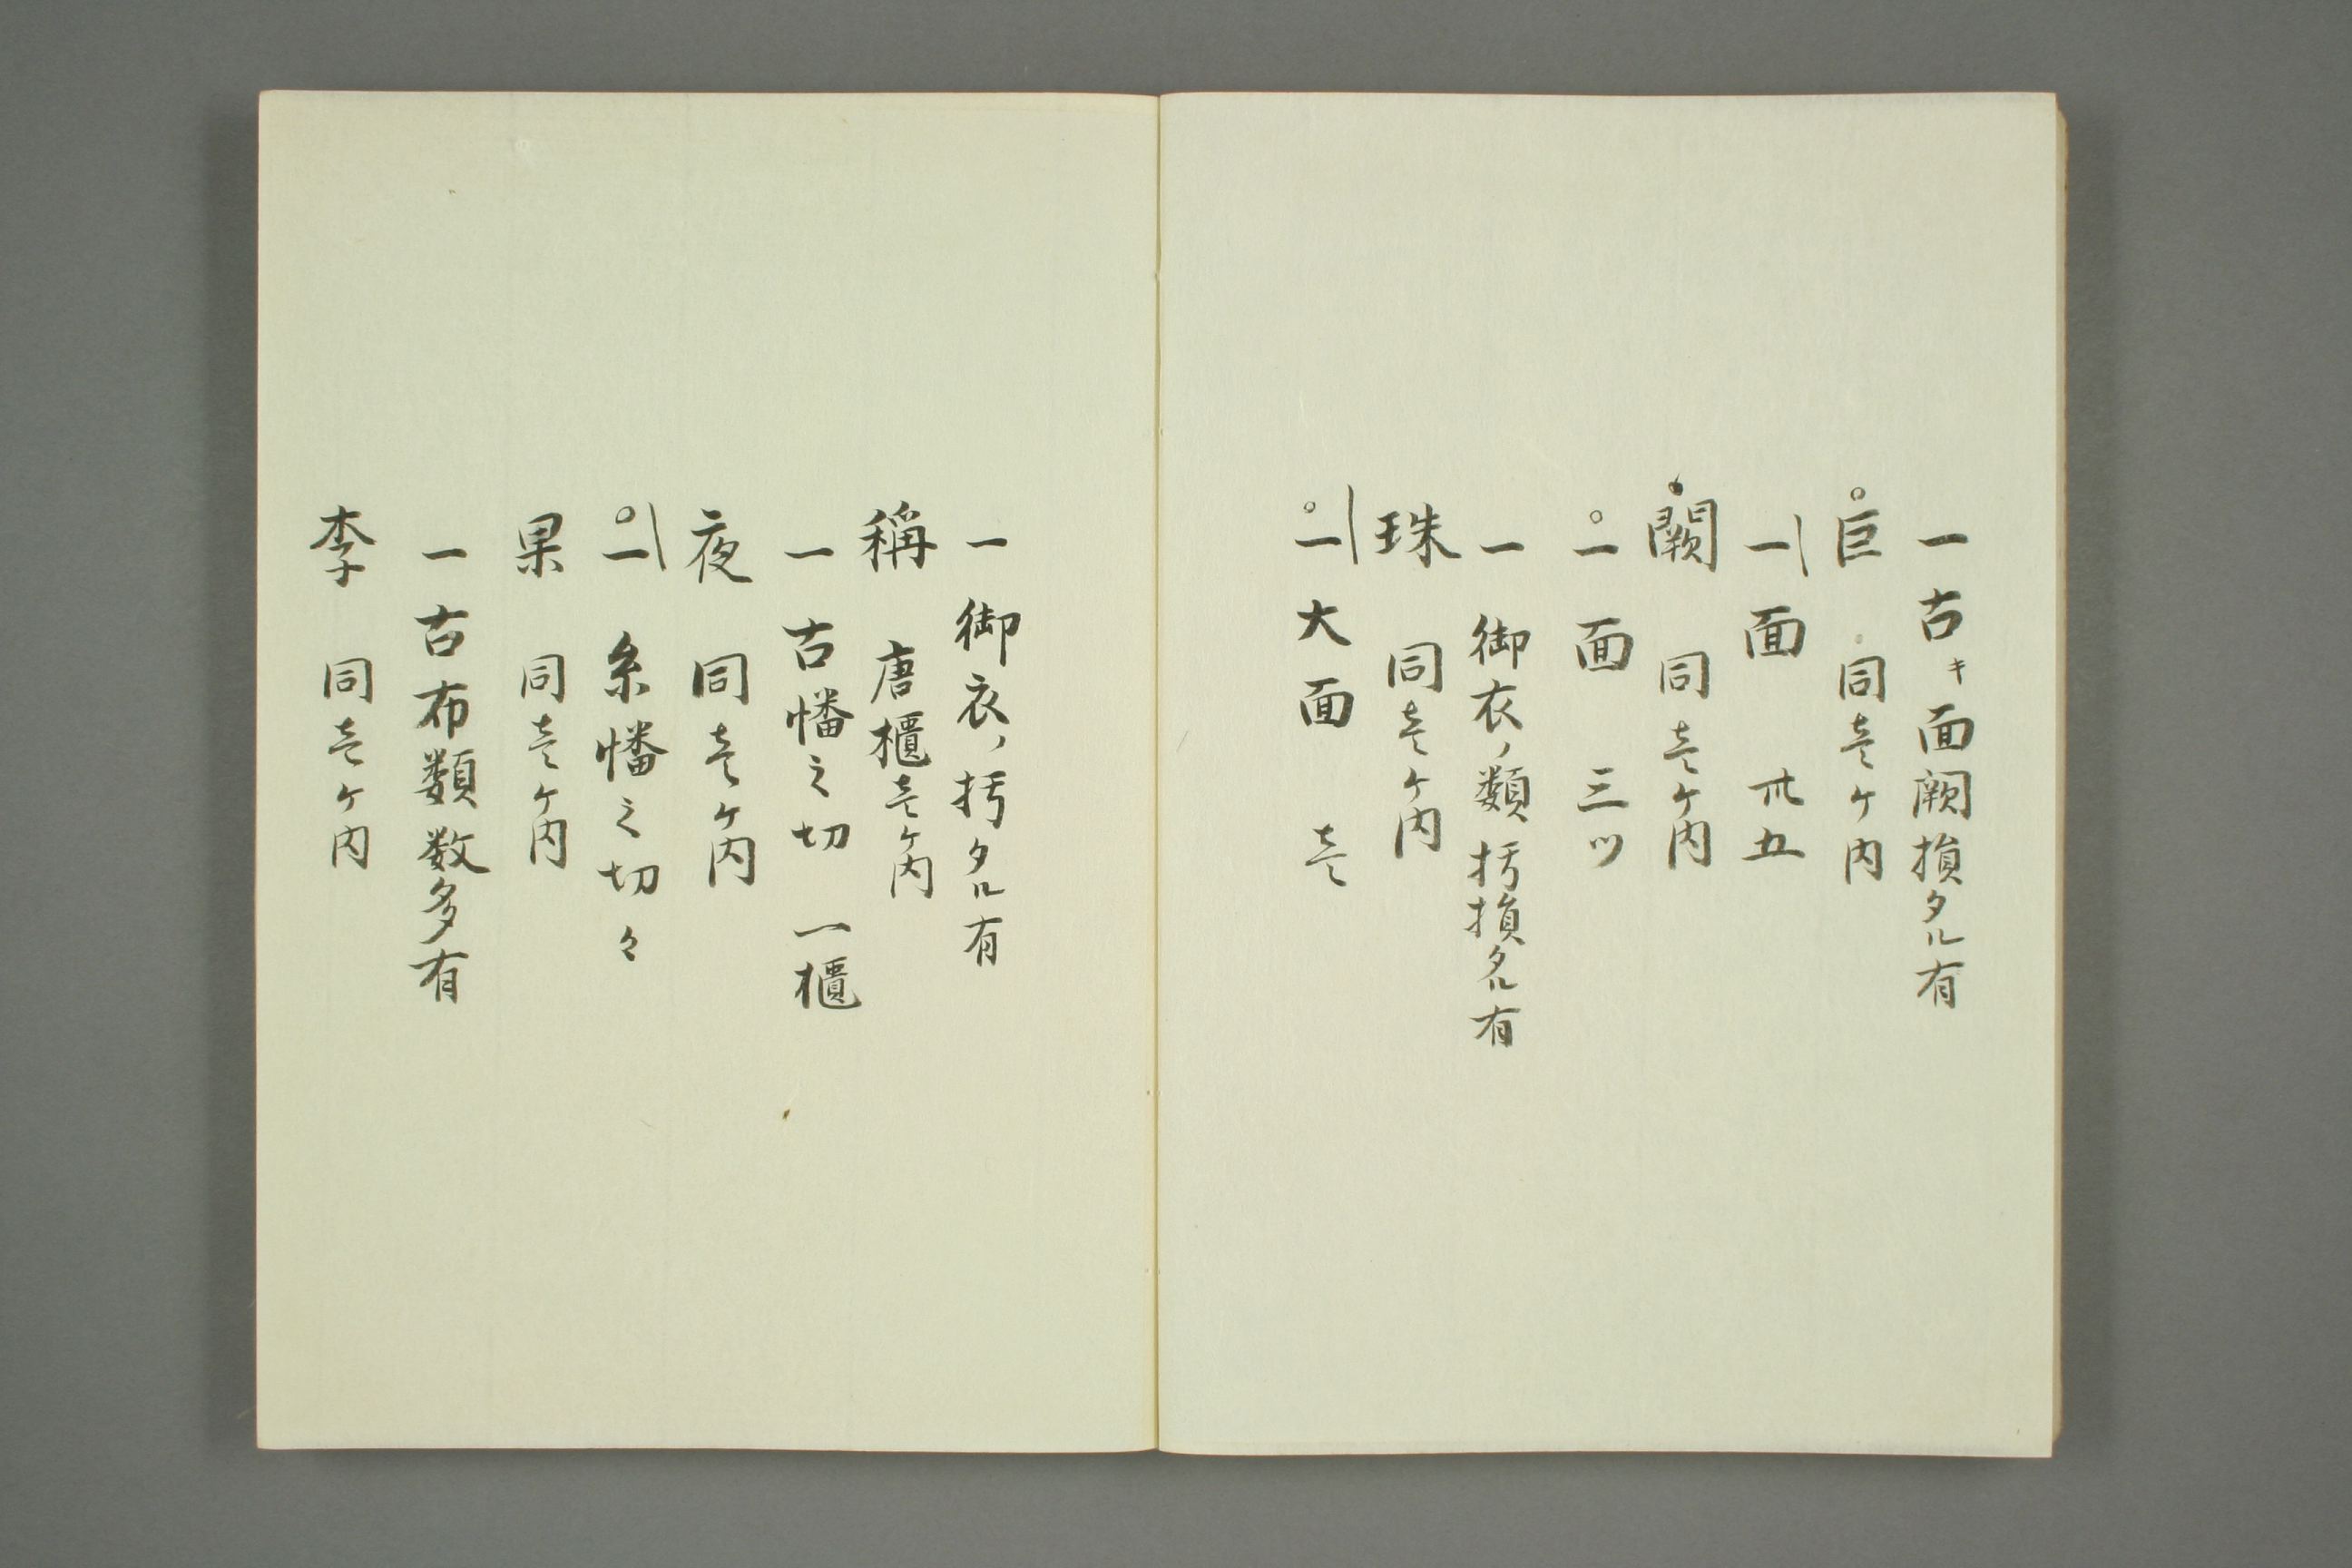 一古キ面闕損タル有
巨 同壱ケ内
一面 卅五
闕 同壱ケ内
一面 三ツ
一御衣ノ類朽損タル有
珠 同壱ケ内
一大面 壱
一御衣ノ朽タル有
稱 唐櫃壱ケ内
一古幡之切 一櫃
夜 同壱ケ内
一糸幡之切々
果 同壱ケ内
一古布類数多有
李 同壱ケ内